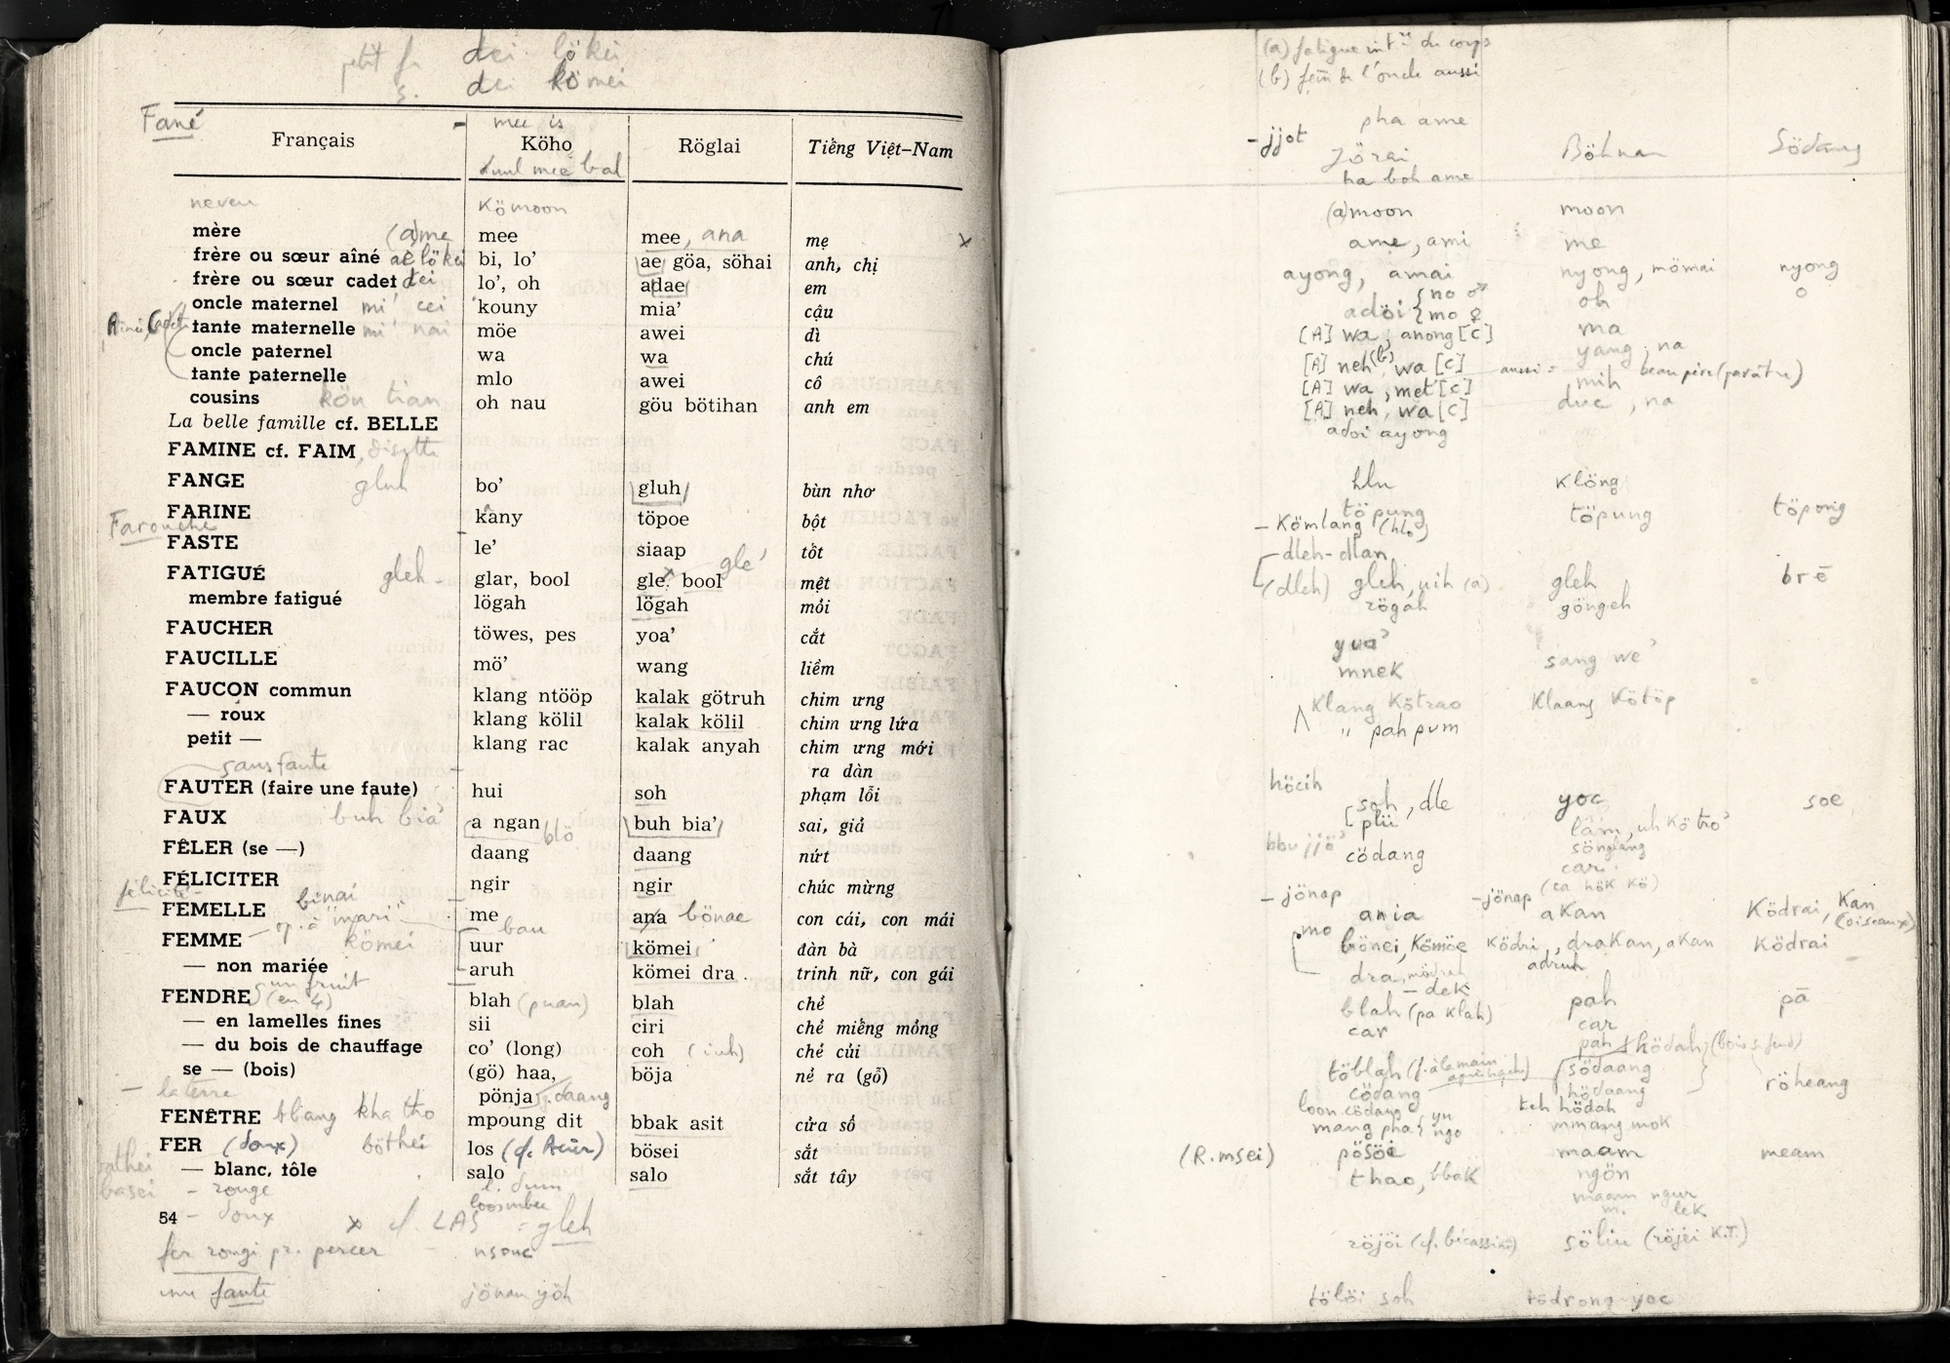 petit f. dei lökei
s. dei kömei
Fané
mee is
Français Köho Röglai Tiếng Việt-Nam
duul mee bal
neveu kömoon
mère (a)me mee mee, ana mẹ
frère ou sœur aîné ae lökei bi, lo’ ae göa, söhai anh, chị
frère ou sœur cadet dei lo’, oh adae em
oncle maternel mi' cei kouny mia’ cậu
tante maternelle mi' nai möe awei dì
oncle paternel wa wa chú
tante paternelle mlo awei cô
cousins kön tian oh nau göu bötihan anh em
La belle famille cf. BELLE
FAMINE cf. FAIM, disette
FANGE gluh bo’ gluh bùn nhơ
FARINE kany töpoe bột
Farouche
FASTE le’ siaap tốt
FATIGUÉ gleh glar, bool gle. bool gle' mệt
membre fatigué lögah lögah mỏi
FAUCHER töwes, pes yoa’ cắt
FAUCILLE mö’ wang liềm
FAUCON commun klang ntööp kalak götruh chim ưng
— roux klang kölil kalak kölil chim ưng lửa
petit — klang rac kalak anyah chim ưng mới
ra dàn
sans faute
FAUTER (faire une faute) hui soh phạm lỗi
FAUX buh bia' a ngan blö buh bia’ sai, giả
FÊLER (se —) daang daang nứt
FÉLICITER ngir ngir chúc mừng
félicité binai
FEMELLE op. à "mari" me ana bönae con cái, con mái
bau
FEMME kömei uur kömei đàn bà
— non mariée aruh kömei dra trinh nữ, con gái
un fruit
FENDRE (en 4) blah (puan) blah chẻ
— en lamelles fines sii ciri chẻ miếng mỏng
— du bois de chauffage co’ (long) coh chẻ củi
se — (bois) (gö) haa, böja nẻ ra (gỗ)
— la terre pönja, daang
FENÊTRE bbang kha tho mpoung dit bbak asit cửa sổ
FER (doux) böthei los bösei sắt
— blanc, tôle salo salo sắt tây
basei - rouge l. dum
loosmbee
54 - doux x cf. LAS = gleh
fer rougi pr. percer - nsouc
une faute jönau yöh
(a) fatigue int<sup>re</sup> du corps
(b) fem de l'oncle aussi
pha ame
- jjot Jörai Böhnar Södang
ha boh ame
(a)moon moon
ame, ami me
ayong, amai nyong, mömai nyong
adöi { no ♂ mo ♀ oh o
[A] wa, anong [C] ma
[A] neh (b), wa [C] yang, na
[A] wa, met [C] aussi = mih beau père (parâtre)
[A] neh, wa [C] due, na
adoi ayong
hlu klöng
töpung töpung töpong
- Kömlang (hlo)
- dleh-dlan
(dleh) gleh, uih (a) gleh brē
rögah göngeh
yua'
mnek sang we'
Klang Kötrao Klaang Kötöp
" pah pum
höcih
soh, dle yoc soe
plü lam, uh kö tro'
bbu jjö' cödang söngiang
car
- jönap - jönap (ca hök kö)
ania akan Ködrai, kan (oiseaux)
mo bönei, Kömöe ködri, drakan, akan Ködrai
dra, mödrah adruh
- dek
blah (pa klah) pah pā
car car
pah hödah (bois s. fend)
töblah (f. à la main södaang
cödang hödaang röheang
loon cödang teh hödah
mang pha yu ngo mmang mok
(R. msei) pösöi maam meam
thao, bbak ngön
maam ngur
m. lek
röjöi (cf. bécassine) söliu (röjei K.T.)
tölöi soh tödrong yoc